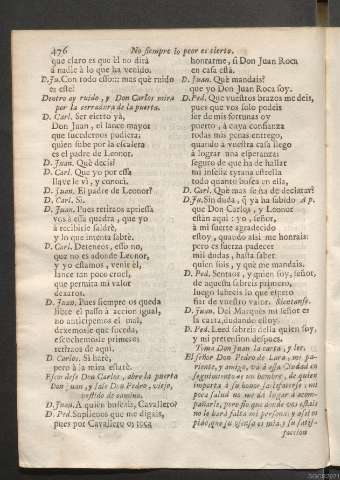 476 No siempre lo peor es cierto.
que claro es que él no dirá
a nadie à lo que ha venido.
D. Ju. Con todo esso::: mas què ruido
es este!
Dentro ay ruido, y Don Carlos mira
por la cerradura de la puerta.
D. Carl. Ser cierto yà,
Don Juan, el lance mayor
que sucedernos pudiera:
quien sube por la escalera
es el padre de Leonor.
D. Juan. Què decis?
D. Carl. Que yo por essa
llave le vi, y conocì.
D. Juan. El padre de Leonor?
D. Carl. Si.
D. Juan. Pues retiraos apriessa
vos à essa quadra, que yo
à recibirle saldrè,
y lo que intenta sabrè.
D. Carl. Deteneos, esso no,
que no es adonde Leonor,
y yo estamos, venir él,
lance tan poco cruel,
que permita mi valor
dexaros.
D. Juan. Pues siempre os queda
libre el passo à accion igual,
no anticipemos el mal,
dexemosle que suceda,
escuchemosle primero:
retiraos de aqui.
D. Carlos. Si harè,
pero à la mira estarè.
Escondese Don Carlos, abre la puerta
Don Juan, y sale Don Pedro, viejo,
vestido de camino.
D. Juan. A quièn buscais, Cavallero?
D. Ped. Suplicoos que me digais,
pues por Cavallero os toca
honrarme, si Don Juan Roca
en casa està.
D. Juan. Què mandais?
que yo Don Juan Roca soy.
D. Ped. Que vuestros brazos me deis,
pues que vos solo podeis
ser de mis fortunas oy
puerto, à cuya confianza
todas mis penas entrego,
quando à vuestra casa llego
à lograr una esperanza:
seguro de que ha de hallar
mi infeliz tyrana estrella
todo quanto busca en ella,
D. Carl. Què mas se ha de declarar?
D. Ju. Sin duda, q̃ ya ha sabido Ap.
que Don Carlos, y Leonor
estàn aqui: yo, señor,
à mi suerte agradecido
estoy, quando assi me honrais:
pero es fuerza padecer
mil dudas, hasta saber
quien sois, y què me mandais.
D. Ped. Sentaos, y quien soy, señor,
de aquesta sabreis primero,
luego sabreis lo que espero
fiar de vuestro valor. Sientanse.
D. Juan. Del Marquès mi señor es
la carta, cuidando estoy.
D. Ped. Leed sabreis della quien soy,
y mi pretension despues.
Toma Don Juan la carta, y lee.
El señor Don Pedro de Lara, mi pariente,
y amigo, và à essa Ciudad en
seguimiento de un hombre, de quien
importa à su honor satisfacerse: mi
poca salud no me dà lugar à acompañarle,
pero fio que donde vos estais
no le harà falta mi persona; y assi os
pido, que su ofensa es mia, y su satisfaccion